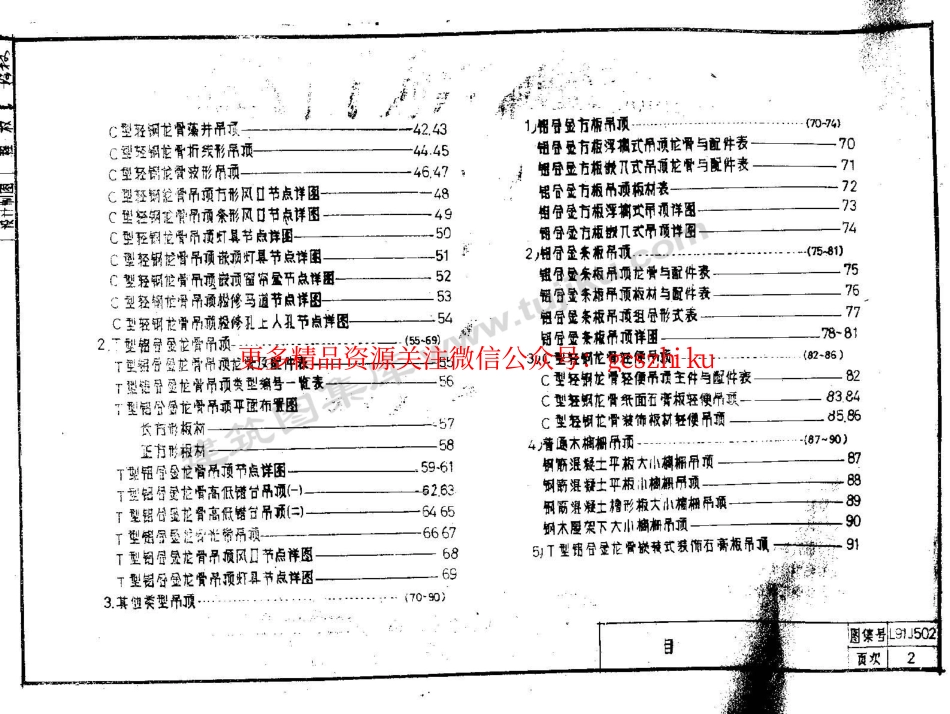 C型轻钢龙骨藻井吊顶 42.43
C型轻钢龙骨折线形吊顶 44.45
C型轻钢龙骨波形吊顶 46.47
C型轻钢龙骨吊顶方形风口节点详图 48
C型轻钢龙骨吊顶条形风口节点详图 49
C型轻钢龙骨吊顶灯具节点详图 50
C型轻钢龙骨吊顶嵌顶灯具节点详图 51
C型轻钢龙骨吊顶嵌顶窗帘盒节点详图 52
C型轻钢龙骨吊顶检修马道节点详图 53
C型轻钢龙骨吊顶检修孔上人孔节点详图 54
2.T型铝合金龙骨吊顶 (55-69)
T型铝合金龙骨吊顶龙骨及配件表 55
T型铝合金龙骨吊顶类型编号一览表 56
T型铝合金龙骨吊顶平面布置图
长方形板材 57
正方形板材 58
T型铝合金龙骨吊顶节点详图 59-61
T型铝合金龙骨高低错台吊顶(一) 62,63
T型铝合金龙骨高低错台吊顶(二) 64 65
T型铝合金龙骨 吊顶 66 67
T型铝合金龙骨吊顶风口节点详图 68
T型铝合金龙骨吊顶灯具节点详图 69
3.其他类型吊顶 (70-90)
1)铝合金方板吊顶 (70-74)
铝合金方板浮搁式吊顶龙骨与配件表 70
铝合金方板嵌入式吊顶龙骨与配件表 71
铝合金方板吊顶板材表 72
铝合金方板浮搁式吊顶详图 73
铝合金方板嵌入式吊顶详图 74
2)铝合金条板吊顶 (75-81)
铝合金条板吊顶龙骨与配件表 75
铝合金条板吊顶板材与配件表 76
铝合金条板吊顶组合形式表 77
铝合金条板吊顶详图 78~81
3)C型轻钢龙骨轻便吊顶 (82-86)
C型轻钢龙骨轻便吊顶主件与配件表 82
C型轻钢龙骨纸面石膏板轻便吊顶 83,84
C型轻钢龙骨装饰板材轻便吊顶 85,86
4)普通木槅栅吊顶 (87~90)
钢筋混凝土平板大小槅栅吊顶 87
钢筋混凝土平板小槅栅吊顶 88
钢筋混凝土槽形板大小槅栅吊顶 89
钢木屋架下大小槅栅吊顶 90
5)T型铝合金龙骨嵌装式装饰石膏板吊顶 91
更多精品资源关注微信公众号：gcszhiku
建筑图集库 www.tujiku.com
目
图集号 L91J502
页次 2
设计制图